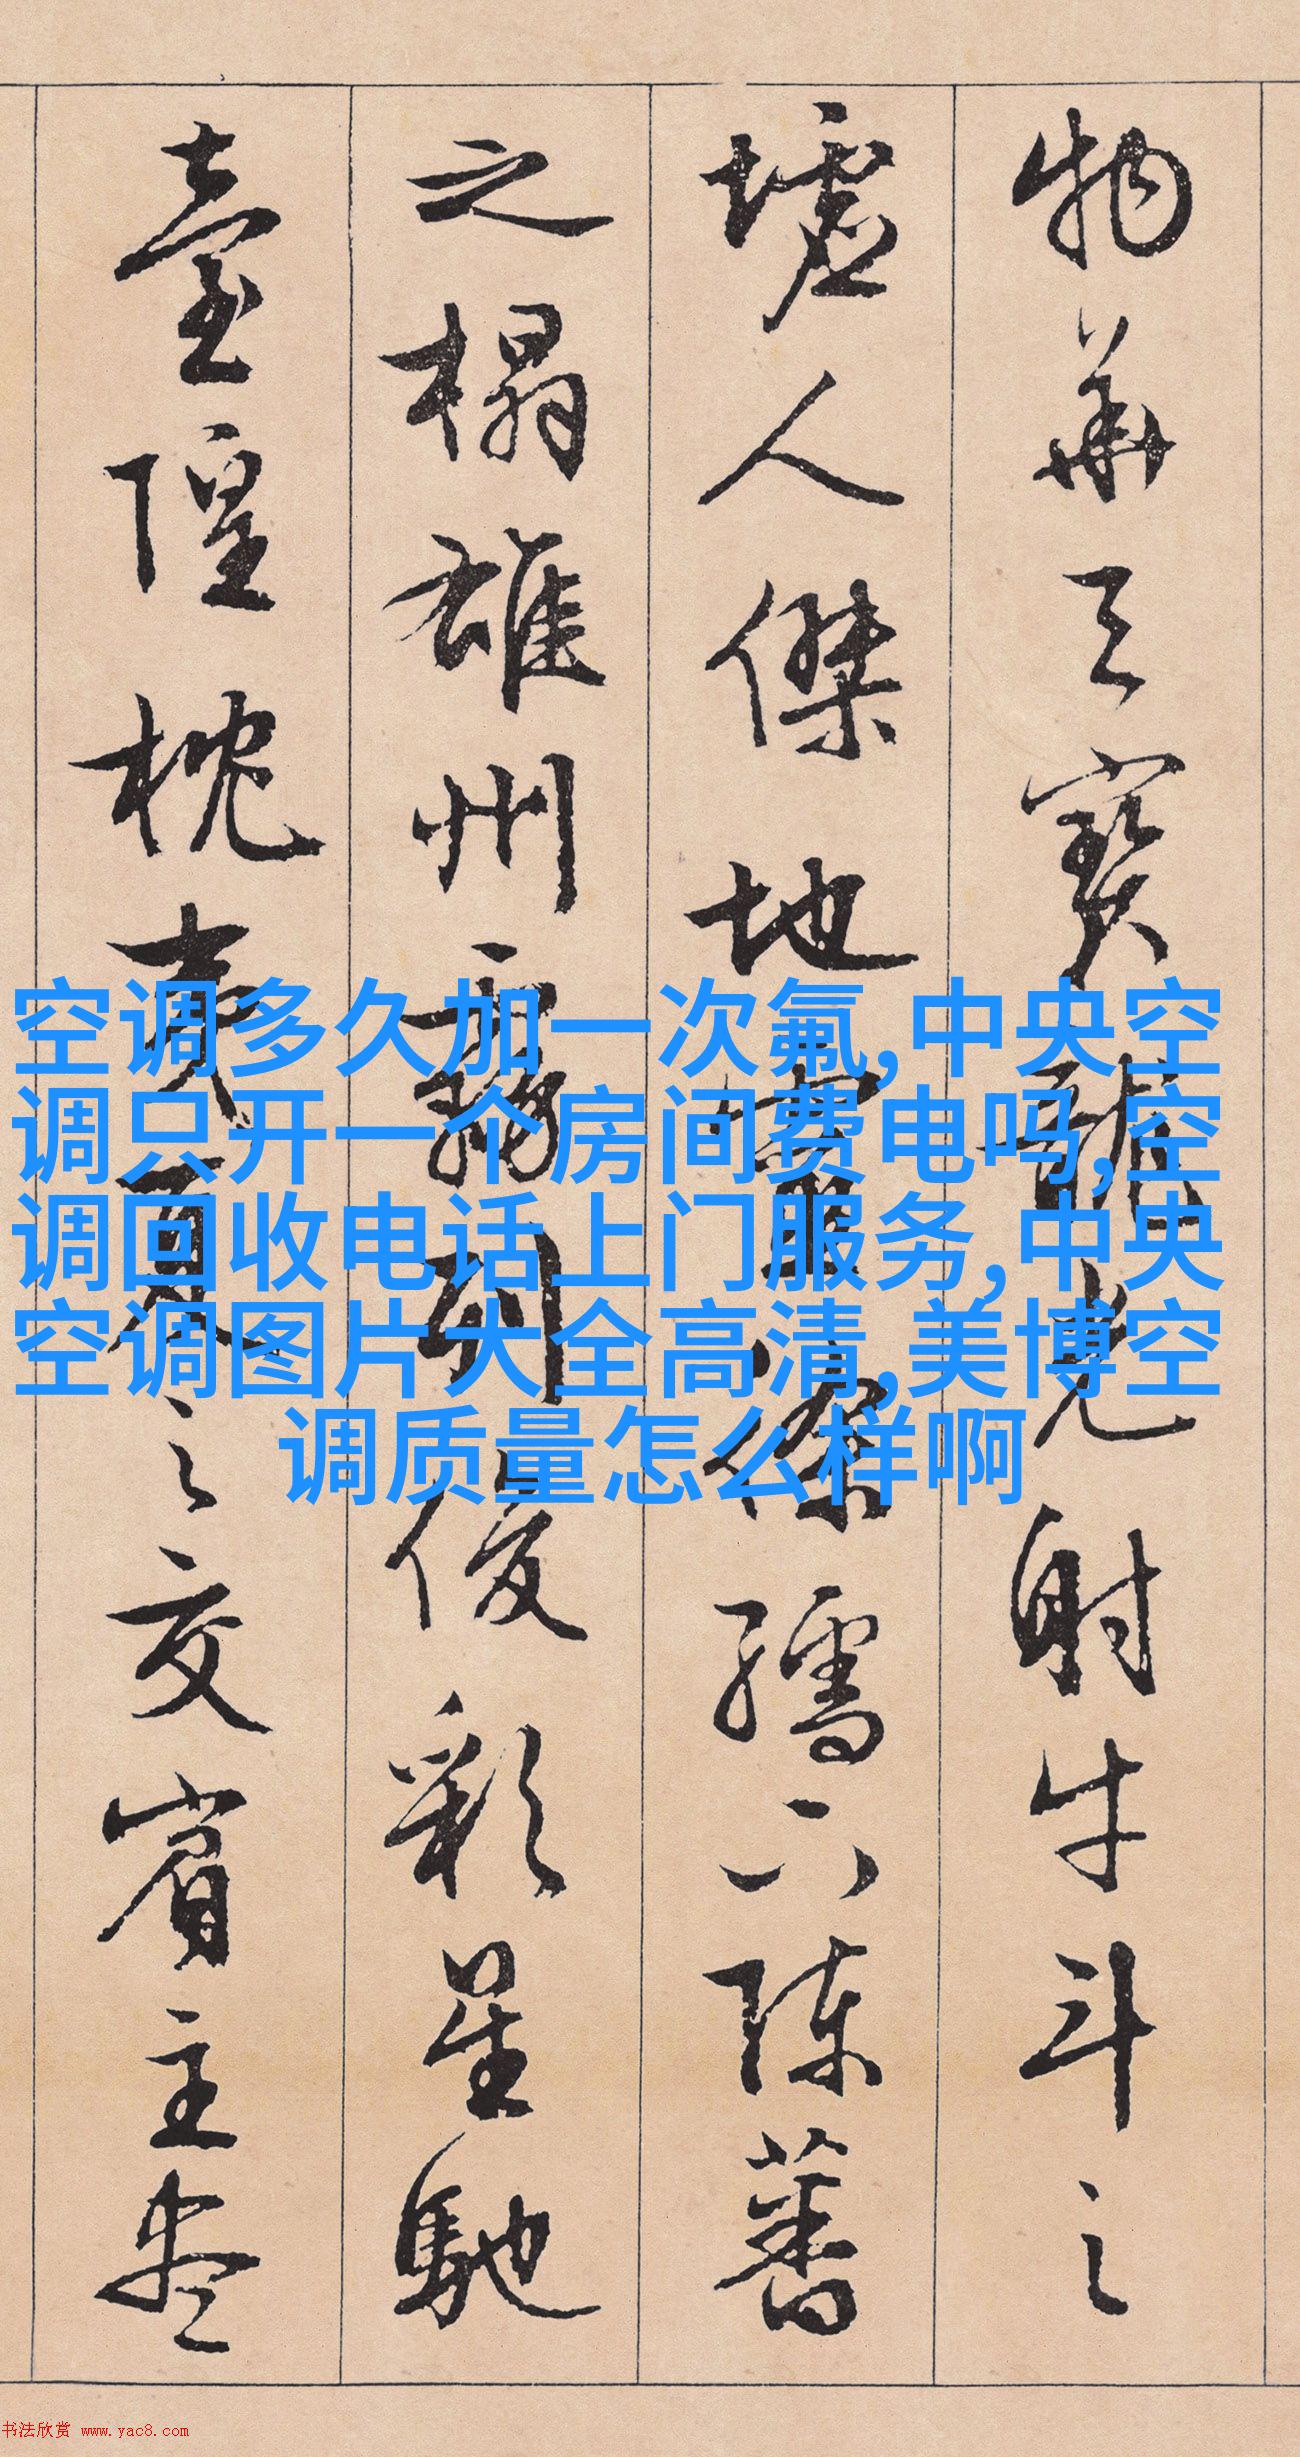 物华天宝龙光射牛斗之
墟人傑地靈徐孺下陈蕃
之榻雄州雾列俊彩星馳
臺隍枕夷夏之交賓主尽
空调多久加一次氟,中央空
调只开一个房间费电吗,空
调回收电话上门服务,中央
空调图片大全高清,美博空
调质量怎么样啊
书法欣赏 www.yac8.com